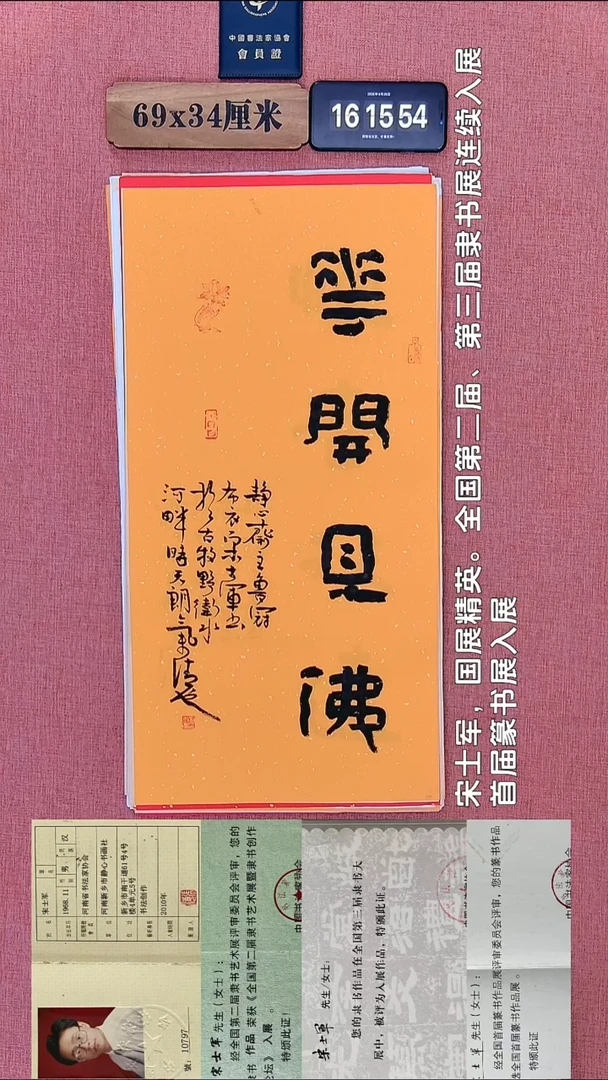 中國書法家協會
會員證
69x34厘米
16 15 54
花開見佛
布衣宋士軍书
於古牧野衛水
河畔時天朗气清也
宋士军，国展精英。全国第二届、第三届隶书展连续入展
首届篆书展入展
宋士军
1968.11
男
汉
河南省书法家协会
河南新乡市静心书画社
新乡市南干道61号4号
楼4单元5号
书法创作
2010年
號: 10797
宋士军 先生（女士）：
经全国第二届隶书艺术展评审委员会评审，您的
隶书 作品 荣获《全国第二届隶书艺术展暨隶书创作
论坛》入展 。
特颁此证！
宋士军 先生/女士：
您的隶书作品在全国第三届隶书大
展中，被评为入展作品，特颁此证。
士军 先生（女士）：
经全国首届篆书作品展评审委员会评审，您的篆书作品
全国首届篆书作品展 。
特颁此证